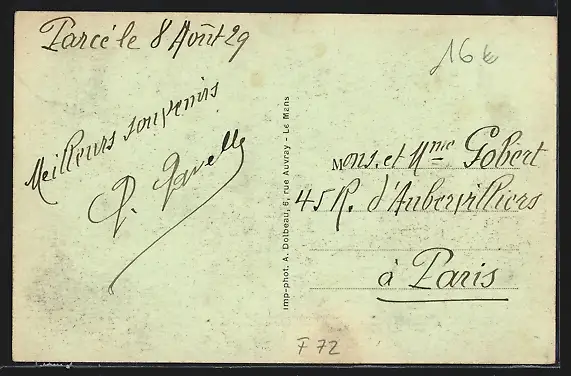 Parcé le 8 Août 29
16 €
Meilleurs souvenirs
Imp-phot. A. Dolbeau, 6, rue Auvray - Le Mans
Mons. et Mme Gobert
45 R. d'Aubervilliers
à Paris
F 72